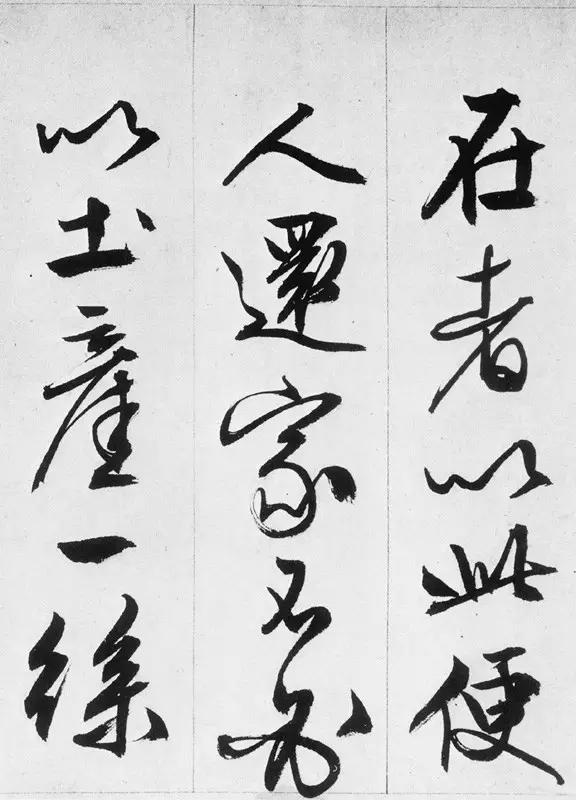 在者以此便
人還家不
以土產一